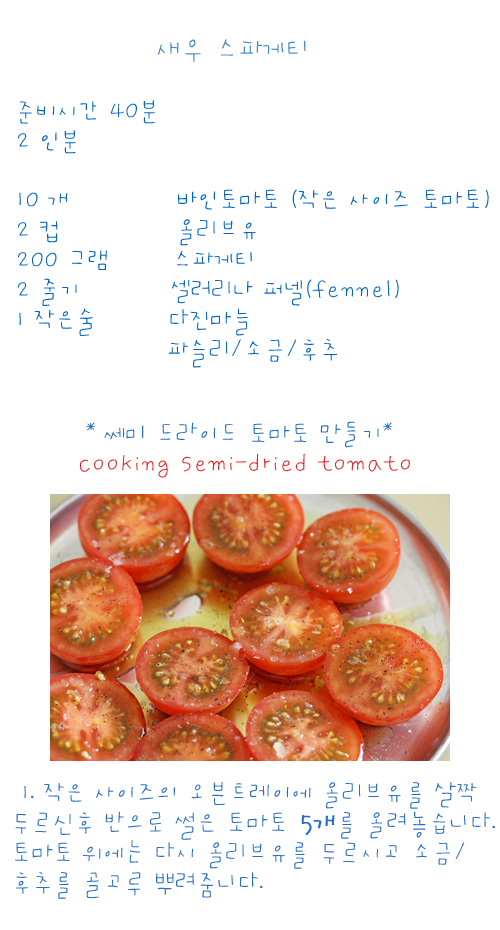 새우 스파게티
준비시간 40분
2 인분
10 개 바인토마토 (작은 사이즈 토마토)
2 컵 올리브유
200 그램 스파게티
2 줄기 셀러리나 퍼넬(fennel)
1 작은술 다진마늘
파슬리/소금/후추
*쎄미 드라이드 토마토 만들기*
cooking semi-dried tomato
1. 작은 사이즈의 오븐트레이에 올리브유를 살짝
두르신후 반으로 썰은 토마토 5개를 올려놓습니다.
토마토 위에는 다시 올리브유를 두르시고 소금/
후추를 골고루 뿌려줍니다.